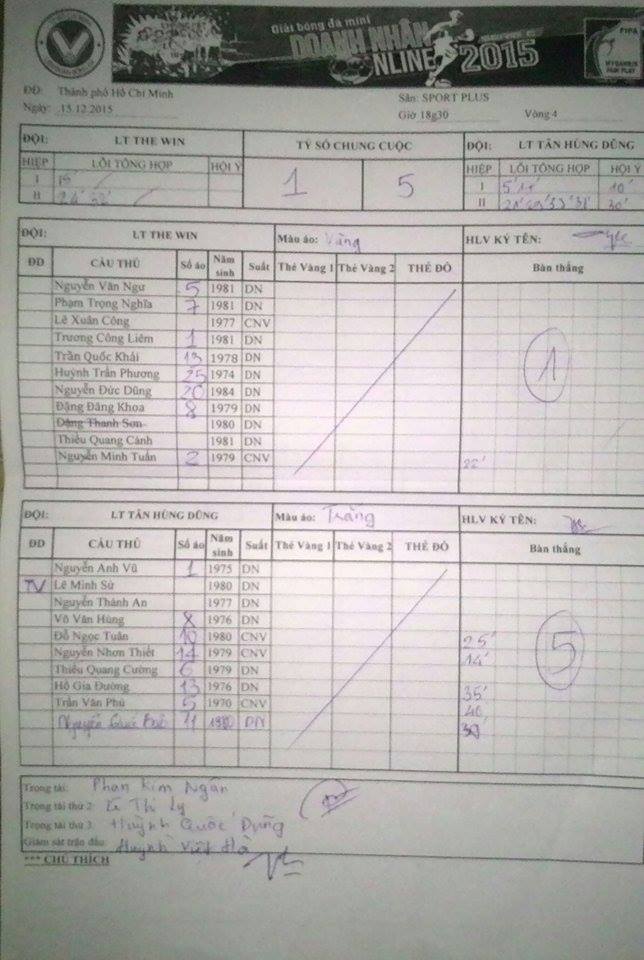 Giải bóng đá mini
DOANH NHÂN
ONLINE 2015
SERIES C
FIFA
MY GAME IS
FAIR PLAY
ĐĐ: Thành phố Hồ Chí Minh
Sân: SPORT PLUS
Ngày: 15.12.2015
Giờ 18g30 Vòng 4
ĐỘI: LT THE WIN TỶ SỐ CHUNG CUỘC ĐỘI: LT TÂN HÙNG DŨNG
HIỆP LỖI TỔNG HỢP HỘI Ý 1 5 HIỆP LỖI TỔNG HỢP HỘI Ý
I 15' I 5' 11' 10'
II 24' 32' II 30'
ĐỘI: LT THE WIN Màu áo: Vàng HLV KÝ TÊN:
ĐD CẦU THỦ Số áo Năm sinh Suất Thẻ Vàng 1 Thẻ Vàng 2 THẺ ĐỎ Bàn thắng
Nguyễn Văn Ngư 5 1981 DN
Phạm Trọng Nghĩa 7 1981 DN
Lê Xuân Công 1977 CNV
Trương Công Liêm 1 1981 DN
Trần Quốc Khải 13 1978 DN
Huỳnh Trần Phương 25 1974 DN
Nguyễn Đức Dũng 20 1984 DN
Đặng Đăng Khoa 8 1979 DN
Đặng Thanh Sơn 1980 DN
Thiều Quang Cảnh 1981 DN
Nguyễn Minh Tuấn 2 1979 CNV 22'
1
ĐỘI: LT TÂN HÙNG DŨNG Màu áo: Trắng HLV KÝ TÊN:
ĐD CẦU THỦ Số áo Năm sinh Suất Thẻ Vàng 1 Thẻ Vàng 2 THẺ ĐỎ Bàn thắng
Nguyễn Anh Vũ 1 1975 DN
TV Lê Minh Sử 1980 DN
Nguyễn Thành An 1977 DN
Võ Văn Hùng 8 1976 DN
Đỗ Ngọc Tuân 10 1980 CNV 25'
Nguyễn Nhơn Thiết 14 1979 CNV 14'
Thiều Quang Cường 6 1979 DN
Hồ Gia Đường 13 1976 DN 35'
Trần Văn Phú 5 1970 CNV 40
Nguyễn Quốc 11 DN
5
Trọng tài: Phan Kim Ngân
Trọng tài thứ 2: Lê Thi Ly
Trọng tài thứ 3: Huỳnh Quốc Dũng
Giám sát trận đấu: Huỳnh Việt Hà
*** CHÚ THÍCH